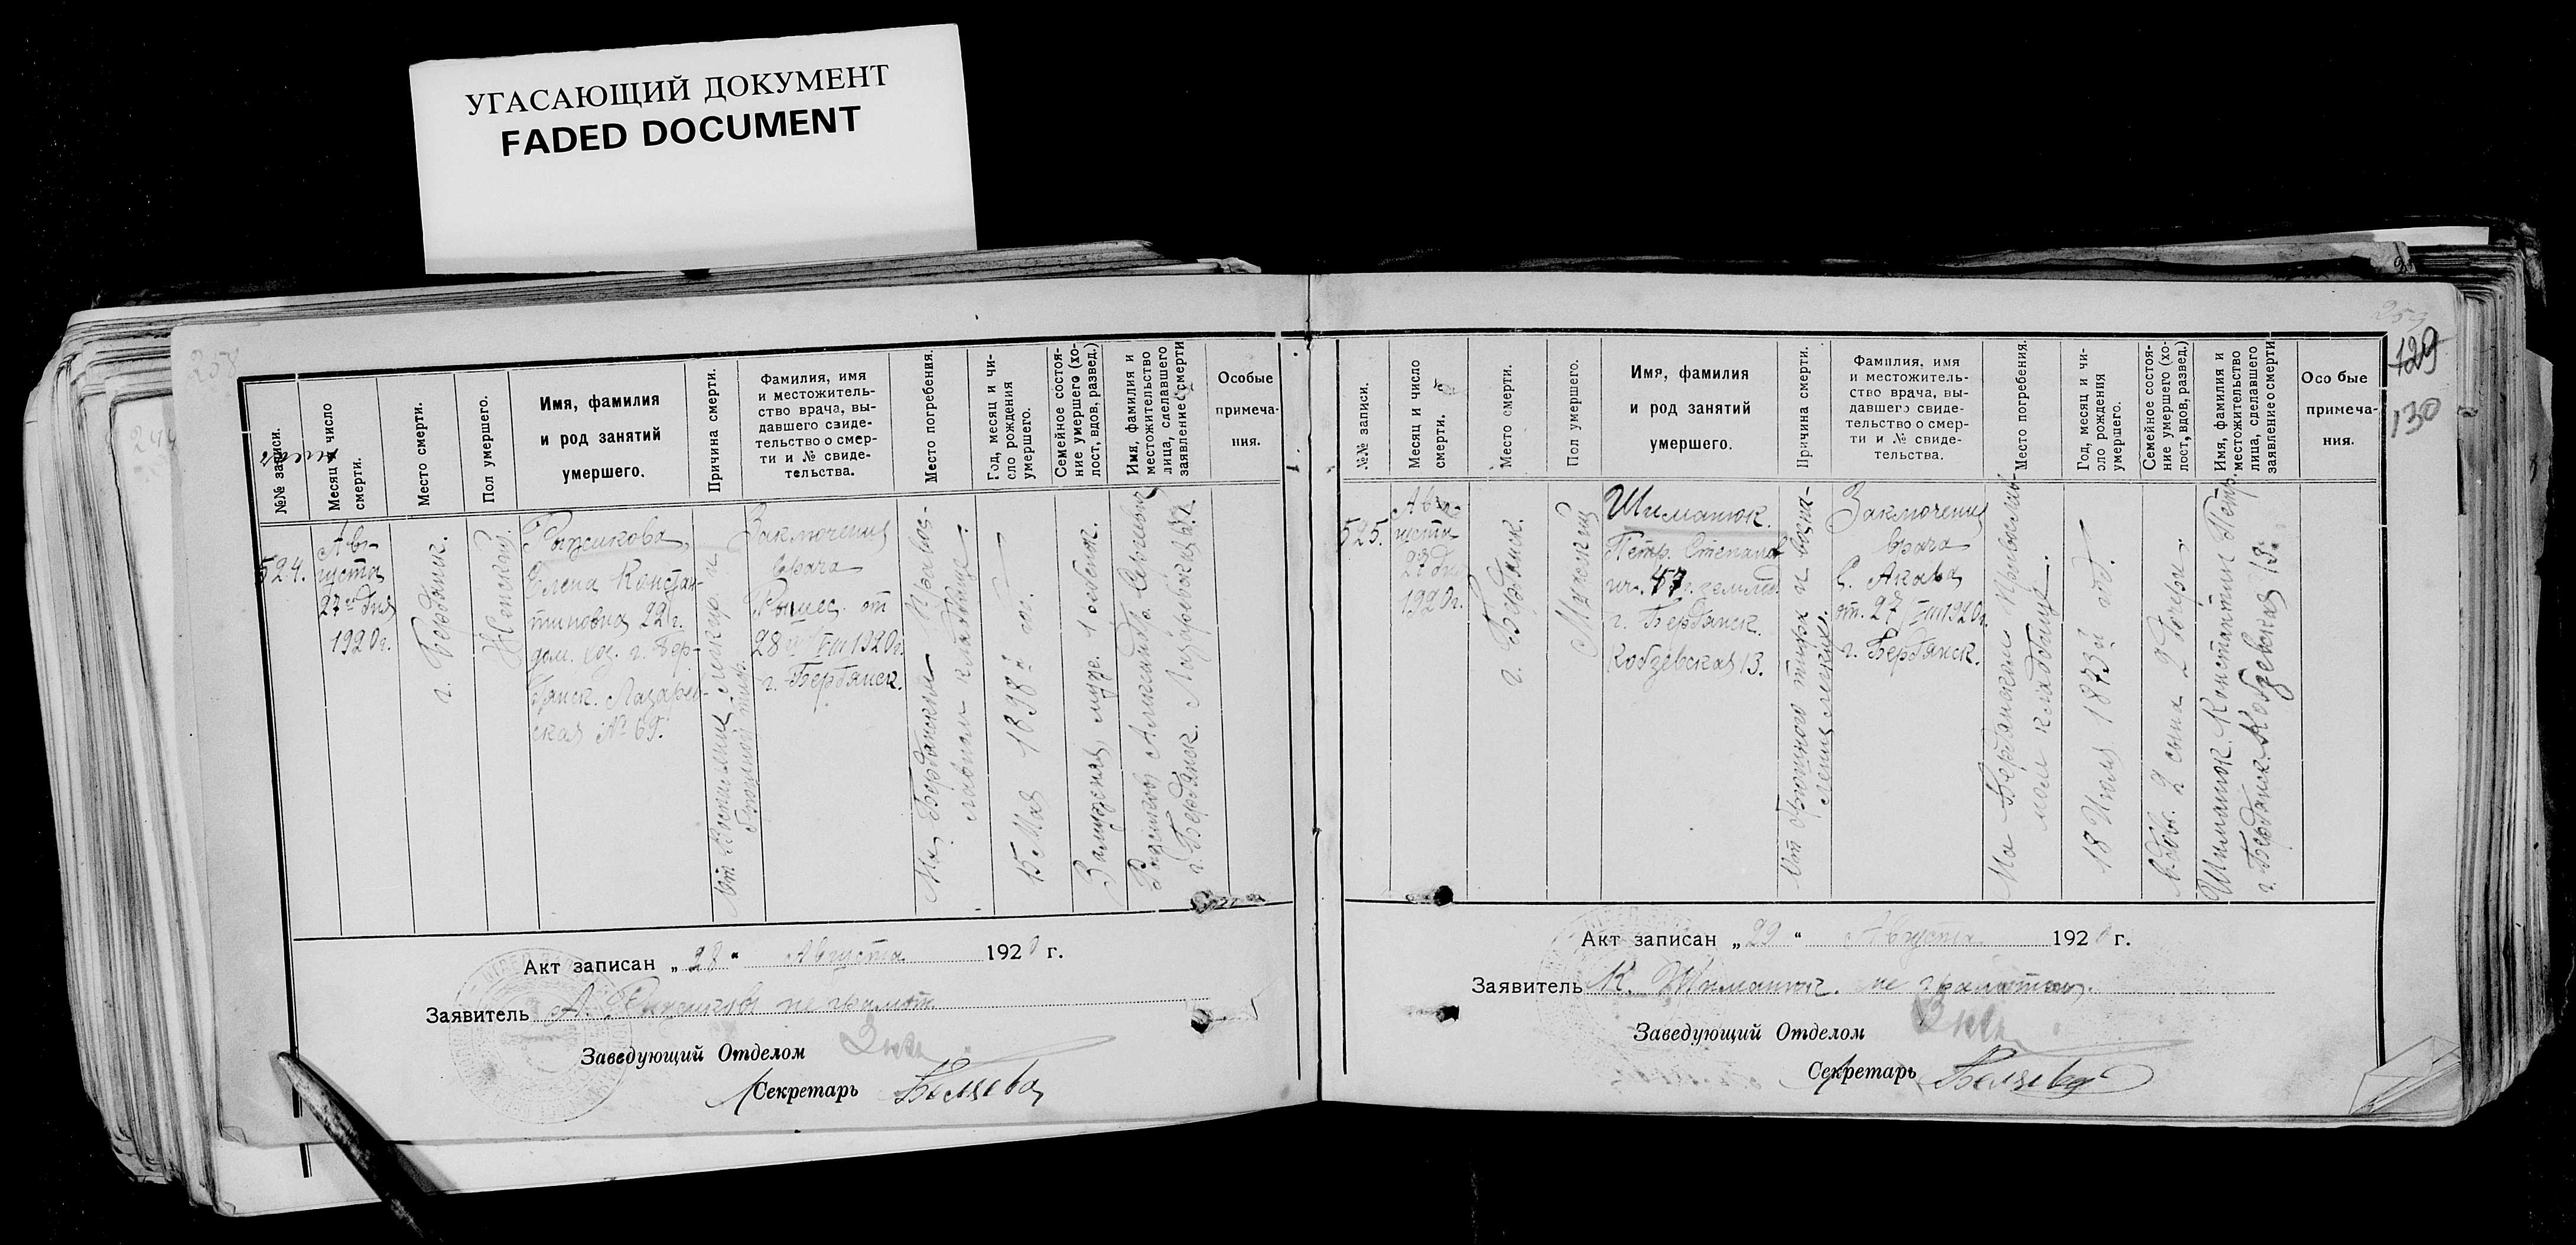 УГАСАЮЩИЙ ДОКУМЕНТ
FADED DOCUMENT
258
№№ записи.
Месяц и число
смерти.
Место смерти.
Пол умершего.
Имя, фамилия
и род занятий
умершего.
Причина смерти.
Фамилия, имя
и местожитель-
ство врача, вы-
давшего свиде-
тельство о смер-
ти и № свиде-
тельства.
Место погребения.
Год, месяц и чи-
сло рождения
умершего.
Семейное состоя-
ние умершего (хо-
лост, вдов, развед.)
Имя, фамилия и
местожительство
лица, сделавшего
заявление о смерти
Особые
примеча-
ния.
524.
Ав-
густа
27го дня
1920г.
г. Бердянск.
Женский.
Рыжикова,
Елена Констан-
тиновна 22 г.
дом. хоз. г. Бер-
дянск. Лазарев-
ская № 69.
От воспаления
брюшной тиф.
Заключения
врача
от
28го/VIII 1920г.
г. Бердянск.
На Бердянском Правос-
лавном кладбище.
15 Мая 1898й год.
Замужняя, муж. 1 ребенок.
Рыжиков Александр Сергеевич
г. Бердянск. Лазаревская
Акт записан „28“ Августа 1920 г.
Заявитель А. Рыжиков не грамот.
Заведующий Отделом
Секретарь
259
129
130
№№ записи.
Месяц и число
смерти.
Место смерти.
Пол умершего.
Имя, фамилия
и род занятий
умершего.
Причина смерти.
Фамилия, имя
и местожитель-
ство врача, вы-
давшего свиде-
тельство о смер-
ти и № свиде-
тельства.
Место погребения.
Год, месяц и чи-
сло рождения
умершего.
Семейное состоя-
ние умершего (хо-
лост, вдов, развед.)
Имя, фамилия и
местожительство
лица, сделавшего
заявление о смерти
Осо бые
примеча-
ния.
525.
Ав-
густа
27 дня
1920г.
г. Бердянск.
Мужской
Шиманюк.
Петр. Степанов
ич. 47 г. землед.
г. Бердянск.
Кобзевская 13.
От брюшного тифа и воспа-
ления легких.
Заключения
врача
от. 27/VIII 1920г.
г. Бердянск.
На Бердянском Православ-
ном кладбище.
18 Июля 1873й год.
вдов. 2 сына 2 дочери.
Шиманюк Константин Петр.
г. Бердянск. Кобзевская 13.
Акт записан „29“ Августа 1920 г.
Заявитель К. Шиманюк. не грамотный.
Заведующий Отделом
Секретарь